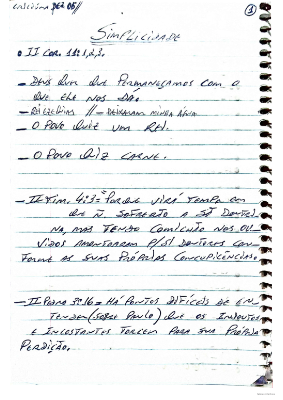 DEZ 06//
1
SIMPLICIDADE
II COR. 11:1,2,3.
- DEUS QUER QUE PERMANEÇAMOS COM O
QUE ELE NOS DÁ.
// - DEIXARAM MINHA ÁGUA
- O POVO QUIZ UM REI.
- O POVO QUIZ CARNE.
- II TIM. 4:3 = PORQUE VIRÁ TEMPO EM
QUE Ñ. SOFRERÃO A SÃ DOUTRI
NA, MAS TENDO COMICHÃO NOS OU
VIDOS AMONTOARAM P/SI DOUTORES CON-
FORME AS SUAS PRÓPRIAS CONCUPICÊNCIAS.
- II PEDRO 3:16 = HÁ PONTOS DIFÍCEIS DE EN-
TENDER (SOBRE PAULO) QUE OS INDOUTOS
E INCOSTANTES TORCEM PARA SUA PRÓPRIA
PERDIÇÃO.